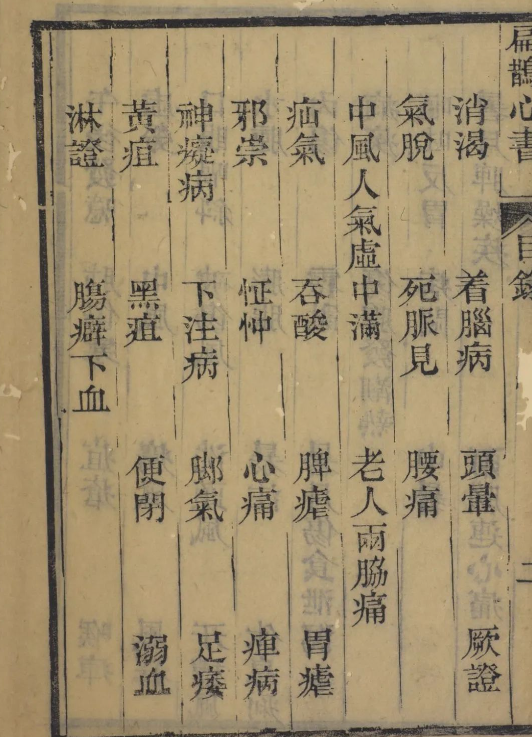 扁鵲心書 目錄 二
消渴 着腦病 頭暈 厥證
氣脫 死脈見 腰痛
中風人氣虛中滿 老人兩脇痛
疝氣 吞酸 脾瘧 胃瘧
邪祟 怔忡 心痛 痺病
神癡病 下注病 腳氣 足痿
黃疸 黑疸 便閉 溺血
淋證 腸癖下血